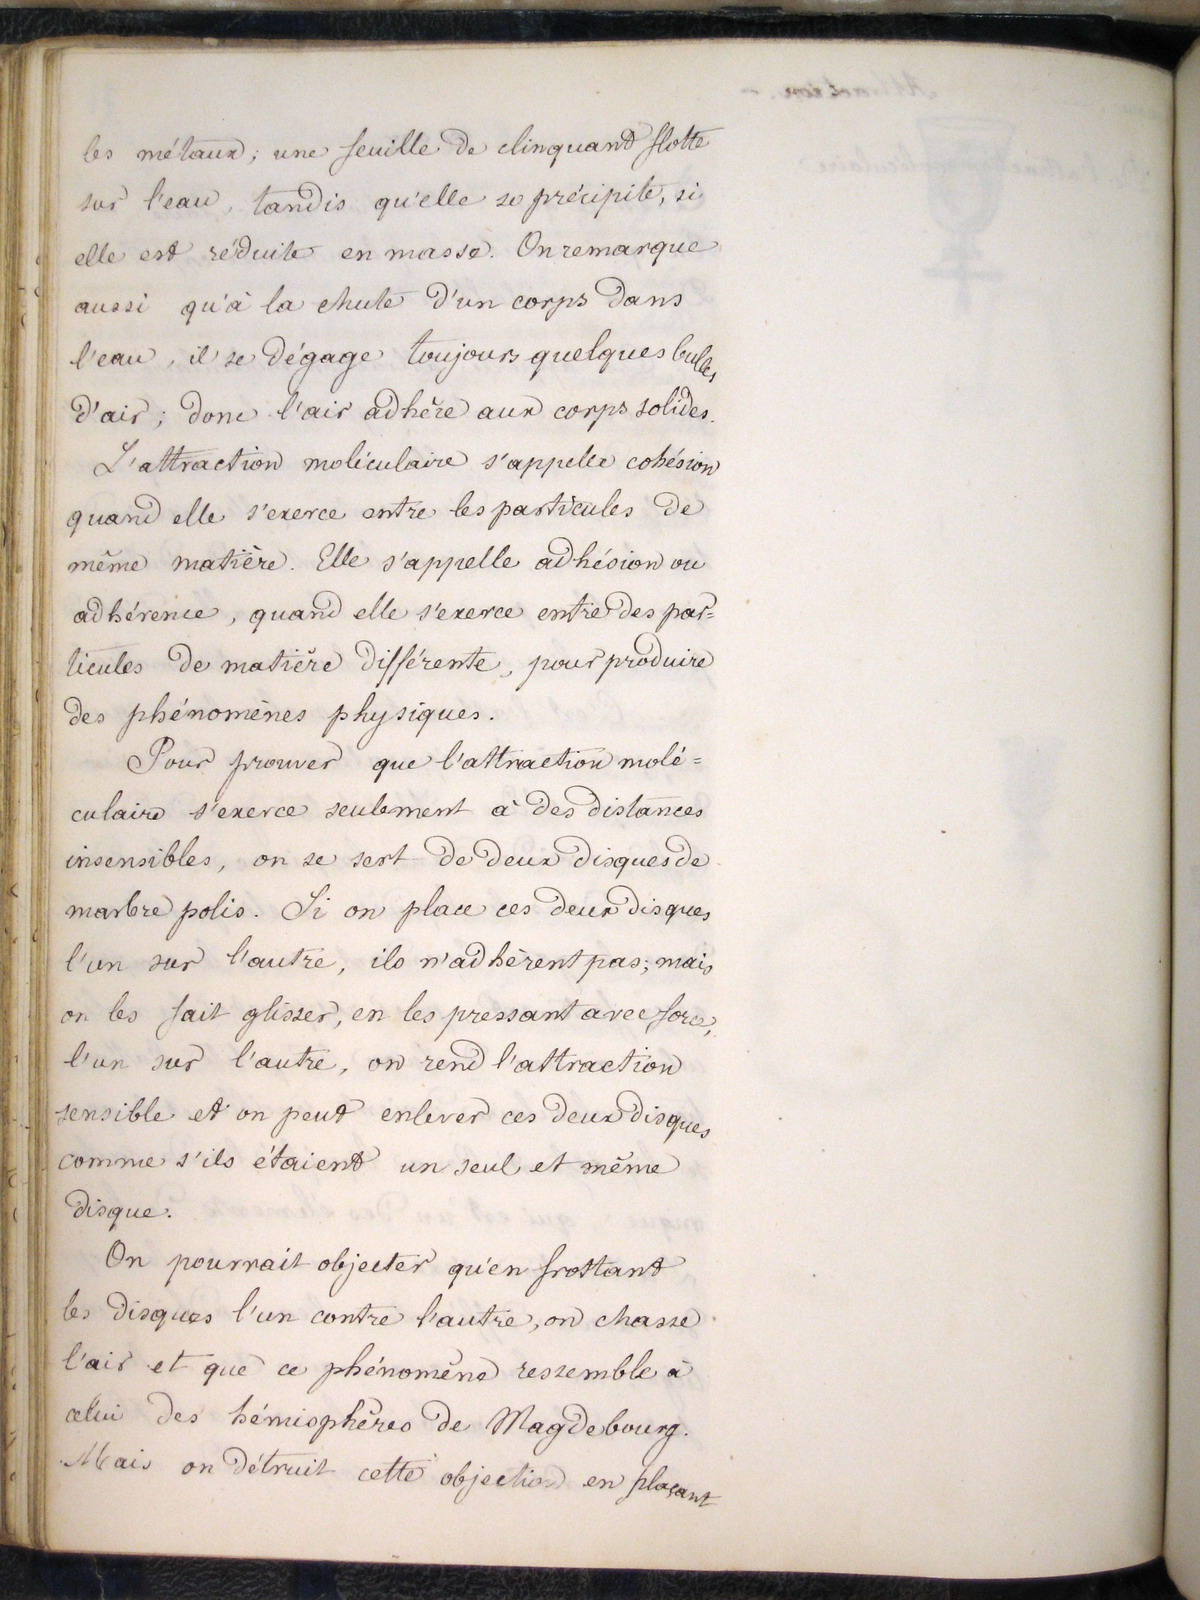 les métaux; une feuille de clinquant flotte
sur l'eau, tandis qu'elle se précipite, si
elle est réduite en masse. On remarque
aussi qu'à la chute d'un corps dans
l'eau, il se dégage toujours quelques bulles
d'air; donc l'air adhère aux corps solides.
L'attraction moléculaire s'appelle cohésion
quand elle s'exerce entre les particules de
même matière. Elle s'appelle adhésion ou
adhérence, quand elle s'exerce entre des par=
ticules de matière différente, pour produire
des phénomènes physiques.
Pour prouver que l'attraction molé=
culaire s'exerce seulement à des distances
insensibles, on se sert de deux disques de
marbre polis. Si on place ces deux disques
l'un sur l'autre, ils n'adhèrent pas; mais
on les fait glisser, en les pressant avec force,
l'un sur l'autre, on rend l'attraction
sensible et on peut enlever ces deux disques
comme s'ils étaient un seul et même
disque.
On pourrait objecter qu'en frottant
les disques l'un contre l'autre, on chasse
l'air et que ce phénomène ressemble à
celui des hémisphères de Magdebourg.
Mais on détruit cette objection en plaçant